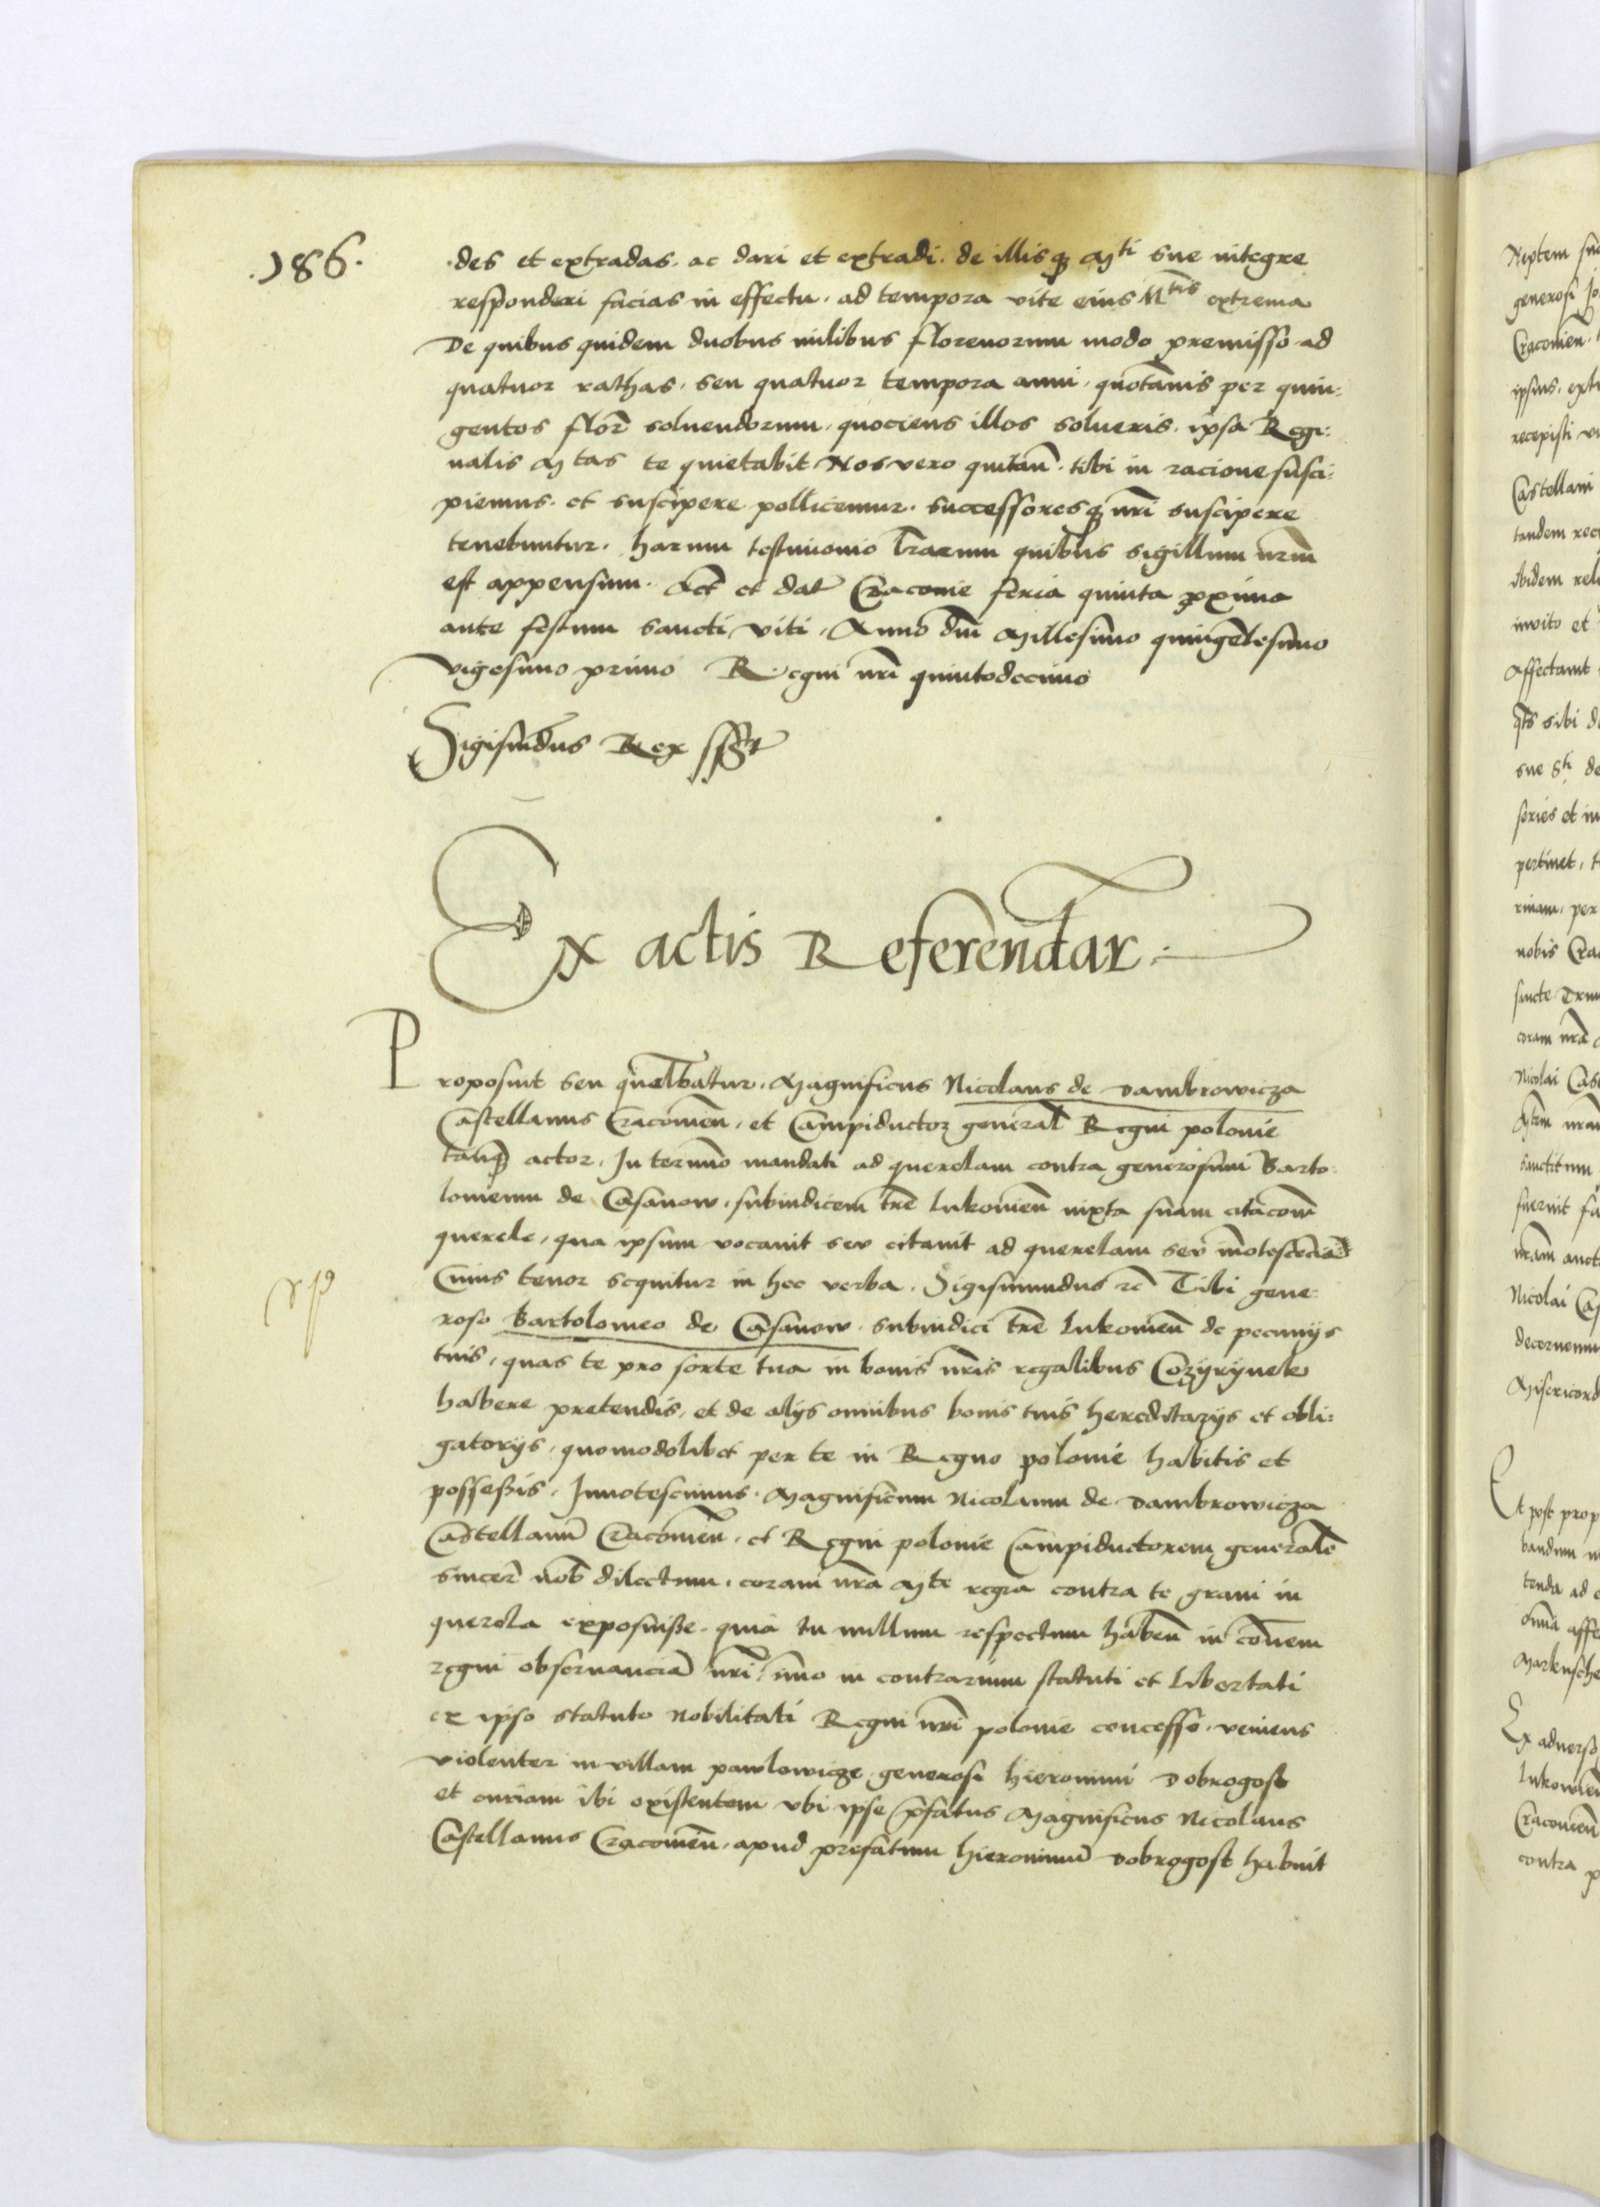 .186.
des et extradas. ac dari et extradi. de illisq Mti sue integre
responderi facias in effectu. ad tempora vite eius Mtis extrema
De quibus quidem duobus milibus florenorum modo premisso ad
quatuor rathas. seu quatuor tempora anni. quotannis per quin:
gentos flor soluendorum. quociens illos solueris. ipsa Regi:
nalis Mtas te quietabit Nos vero quitan. tibi in racione susci:
piemus. et suscipere pollicemur. successoresq nri suscipere
tenebuntur. harum testimonio lrarum quibus sigillum nrm
est appensum. Act et dat Cracouie feria quinta pxima
ante festum sancti viti. Anno dni Millesimo quingetesimo
vigesimo primo Regni nri quintodecimo
Sigismdus Rex sst
Ex actis Referendar.
Proposuit seu querelbatur. Magnificus Nicolaus de Dambrowicza
Castellanus Cracouien. et Campiductor general Regni polonie
tanq actor. In termino mandati ad querelam contra generosum Barto:
lomeum de Casanow. subiudicem tre Lukouien iuxta suam citacom
querele. qua ipsum vocauit seu citauit ad querelam seu inotescencia
Cuius tenor sequitur in hec verba. Sigismundus rc Tibi gene:
roso Bartolomeo de Casanow. subiudici tre Lukouien de pecunijs
tuis. quas te pro sorte tua in bonis nris regalibus Cozyrynele
habere pretendis. et de alijs omnibus bonis tuis hereditarijs et obli:
gatorijs. quomodolibet per te in Regno polonie habitis et
possessis. Innotescimus. Magnificum Nicolaum de Dambrowicza
Castellanu Cracouien. et Regni polonie Campiductorem generale
sincer nob dilectum. coram nra Mte regia contra te graui in
querela exposuisse. quia tu nullum respectum haben in coem
regni obseruancia nri. imo in contrarium statuti et libertati
ex ipso statuto Nobilitati Regni nri polonie concesse. veniens
violenter in villam pawlowicze generosi Hieronimi Dobrogost
et curiam ibi existentem vbi ipse pfatus Magnificus Nicolaus
Castellanus Cracouien. apud prefatum Hieronimu Dobrogost habuit